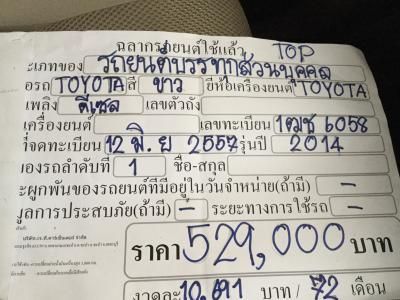 ฉลากรถยนต์ใช้แล้ว TOP
ะเภทของ รถยนต์บรรทุกส่วนบุคคล
อรถ TOYOTA สี ขาว ยี่ห้อเครื่องยนต์ TOYOTA
เพลิง ดีเซล เลขตัวถัง
เครื่องยนต์ เลขทะเบียน 1ฒช 6058
จดทะเบียน 12 มิ.ย 2557 รุ่นปี 2014
ของรถลำดับที่ 1 ชื่อ-สกุล
ะผูกพันของรถยนต์ที่มีอยู่ในวันจำหน่าย(ถ้ามี) -
มูลการประสบภัย(ถ้ามี) - ระยะทางการใช้รถ -
ราคา 529,000 บาท
งวดละ 10,691 บาท / 72 เดือน